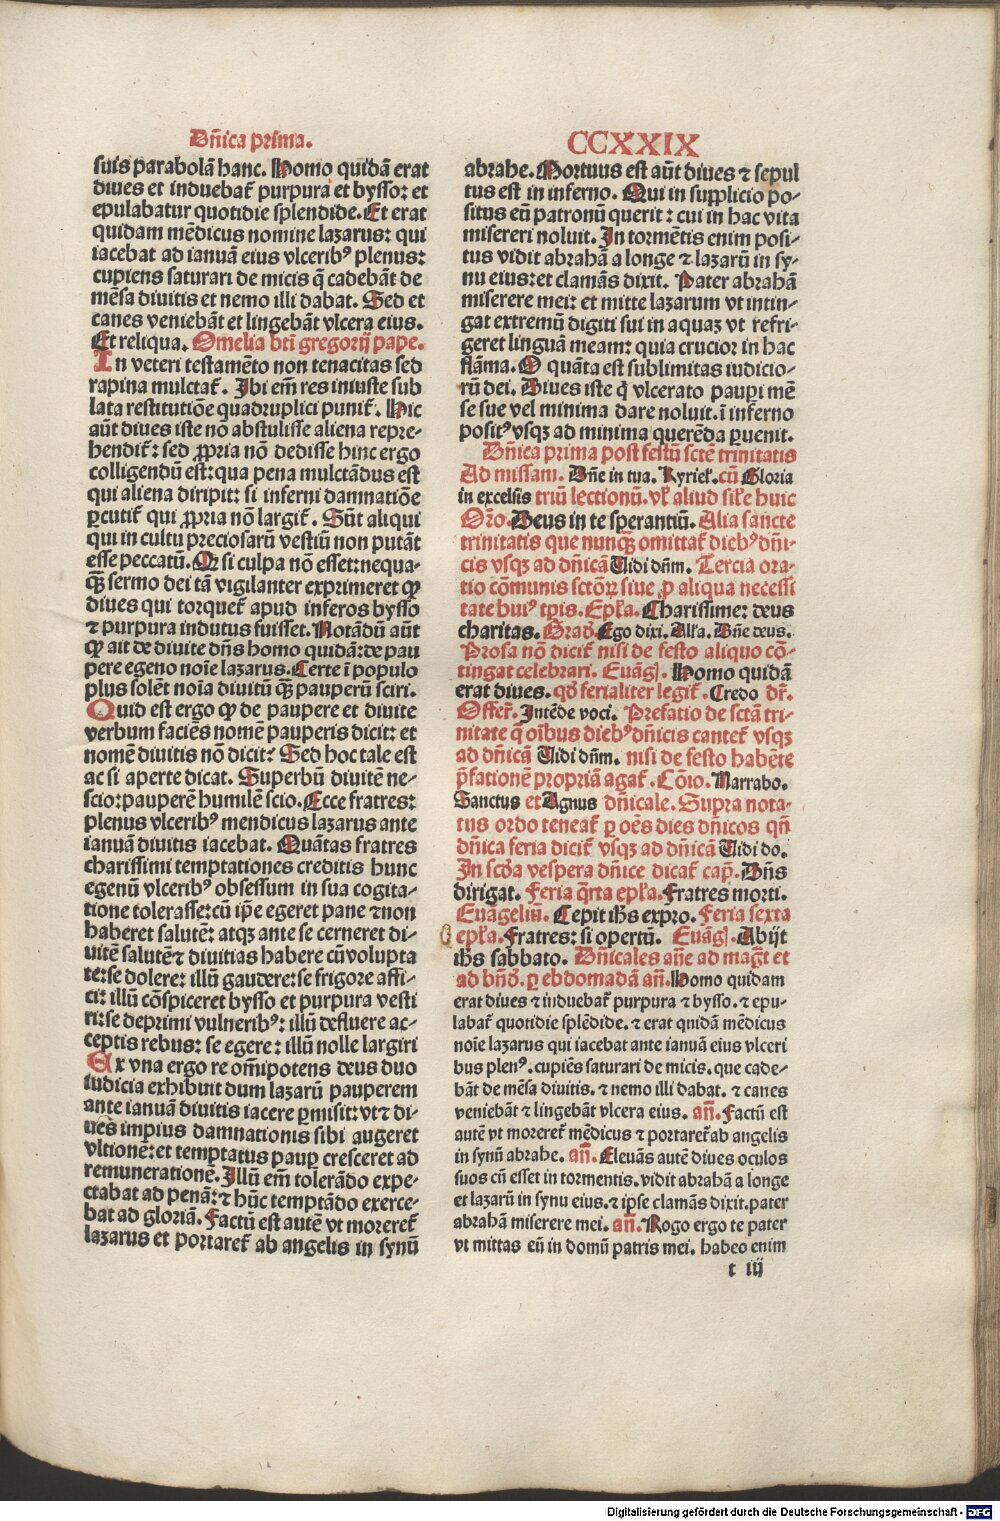 Dñica prima.
suis parabolã hanc. Homo quidã erat
diues et induebat᷑ purpura et bysso: et
epulabatur quotidie splendide. Et erat
quidam mẽdicus nomine lazarus: qui
iacebat ad ianuã eius vlcerib⁹ plenus:
cupiens saturari de micis q̃ cadebãt de
mẽsa diuitis et nemo illi dabat. Sed et
canes veniebãt et lingebãt vlcera eius.
Et reliqua. Omelia bti̅ gregorij pape.
In veteri testamẽto non tenacitas sed
rapina mulctat᷑. Ibi em̃ res iniuste sub
lata restitutiõe quadruplici punit᷑. Hic
aũt diues iste nõ abstulisse aliena repre-
hendit᷑: sed ꝓpria nõ dedisse hinc ergo
colligendũ est: qua pena mulctãdus est
qui aliena diripit: si inferni damnatiõe
ꝑcutit᷑ qui ꝓpria nõ largit᷑. Sũt aliqui
qui in cultu preciosarũ vestiũ non putãt
esse peccatũ. Qꝫ si culpa nõ esset: nequa-
q̃ꝫ sermo dei tã vigilanter exprimeret ꝙ
diues qui torquet᷑ apud inferos bysso
⁊ purpura indutus fuisset. Notãdũ aũt
ꝙ ait de diuite dñs homo quidã: de pau
pere egeno noĩe lazarus. Certe ĩ populo
plus solẽt noĩa diuitũ q̃ꝫ pauperũ sciri.
Quid est ergo ꝙ de paupere et diuite
verbum faciẽs nomẽ pauperis dicit: et
nomẽ diuitis nõ dicit? Sed hoc tale est
ac si aperte dicat. Superbũ diuitẽ ne-
scio: pauperẽ humilẽ scio. Ecce fratres:
plenus vlcerib⁹ mendicus lazarus ante
ianuã diuitis iacebat. Quãtas fratres
charissimi temptationes creditis hunc
egenũ vlcerib⁹ obsessum in sua cogita-
tione tolerasse: cũ ip̃e egeret pane ⁊ non
haberet salutẽ: atqꝫ ante se cerneret di-
uitẽ salutẽ ⁊ diuitias habere cũ volupta
te: se dolere: illũ gaudere: se frigore affi-
ci: illũ cõspiceret bysso et purpura vesti
ri: se deprimi vulnerib⁹: illũ defluere ac-
ceptis rebus: se egere: illũ nolle largiri
Ex vna ergo re om̃ipotens deus duo
iudicia exhibuit dum lazarũ pauperem
ante ianuã diuitis iacere ꝑmisit: vt ⁊ di-
ues impius damnationis sibi augeret
vltionẽ: et temptatus paup̱ cresceret ad
remunerationẽ. Illũ em̃ tolerãdo expe-
ctabat ad penã: ⁊ hũc temptãdo exerce-
bat ad gloriã. Factũ est autẽ vt moreret᷑
lazarus et portaret᷑ ab angelis in synũ
CCXXIX
abrahe. Mortuus est aũt diues ⁊ sepul
tus est in inferno. Qui in supplicio po-
situs eũ patronũ querit: cui in hac vita
misereri noluit. In tormẽtis enim posi-
tus vidit abrahã a longe ⁊ lazarũ in sy-
nu eius: et clamãs dixit. Pater abrahã
miserere mei: et mitte lazarum vt intin-
gat extremũ digiti sui in aquaꝫ vt refri-
geret linguã meam: quia crucior in hac
flãma. O quãta est sublimitas iudicio-
rũ dei. Diues iste q̃ vlcerato paup̱i mẽ
se sue vel minima dare noluit. ĩ inferno
posit⁹ vsqꝫ ad minima querẽda ꝑuenit.
Dñica prima post festũ sctẽ trinitatis
Ad missam. Dñe in tua. Kyriel᷑. cũ Gloria
in excelsis triũ lectionũ. vl᷑ aliud sil᷑e huic
Orõ. Deus in te sperantiũ. Alia sancte
trinitatis que nunq̃ꝫ omittat᷑ dieb⁹ dñi-
cis vsqꝫ ad dñicã Uidi dñm. Tercia ora-
tio cõmunis sctõꝝ siue ꝓ aliqua necessi
tate hui⁹ tp̃is. Epl᷑a. Charissime: deus
charitas. Grad᷑. Ego dixi. All᷑a. Dñe deus.
Prosa nõ dicit᷑ nisi de festo aliquo cõ-
tingat celebrari. Euãgl᷑. Homo quidã
erat diues. qd̃ ferialiter legit᷑. Credo dr̃.
Offer᷑. Intẽde voci. Prefatio de sctã tri-
nitate q̃ oĩbus dieb⁹ dñicis cantet᷑ vsqꝫ
ad dñicã Uidi dñm. nisi de festo habete
p̃fationẽ propriã agat᷑. Cõio. Narrabo.
Sanctus et Agnus dñicale. Supra nota-
tus ordo teneat᷑ ꝑ oẽs dies dñicos qñ
dñica feria dicit᷑ vsqꝫ ad dñicã Uidi do.
In scd̃a vespera dñice dicat᷑ cap̃. Dñs
dirigat. Feria q̃rta epl᷑a. Fratres morti.
Euãgeliũ. Cepit ih̃s expro. Feria sexta
epl᷑a. Fratres: si opertũ. Euãgl᷑. Abijt
ih̃s sabbato. Dñicales añe ad mag̃t et
ad bñd᷑. ꝑ ebdomadã añ. Homo quidam
erat diues ⁊ induebat᷑ purpura ⁊ bysso. ⁊ epu-
labat᷑ quotidie splẽdide. ⁊ erat quidã mẽdicus
noĩe lazarus qui iacebat ante ianuã eius vlceri
bus plen⁹. cupiẽs saturari de micis. que cade-
bãt de mẽsa diuitis. ⁊ nemo illi dabat. ⁊ canes
veniebãt ⁊ lingebãt vlcera eius. añ. Factũ est
autẽ vt moreret᷑ mẽdicus ⁊ portaret᷑ ab angelis
in synũ abrahe. añ. Eleuãs autẽ diues oculos
suos cũ esset in tormentis. vidit abrahã a longe
et lazarũ in synu eius. ⁊ ipse clamãs dixit. pater
abrahã miserere mei. añ. Rogo ergo te pater
vt mittas eũ in domũ patris mei. habeo enim
t iij
Digitalisierung gefördert durch die Deutsche Forschungsgemeinschaft - DFG